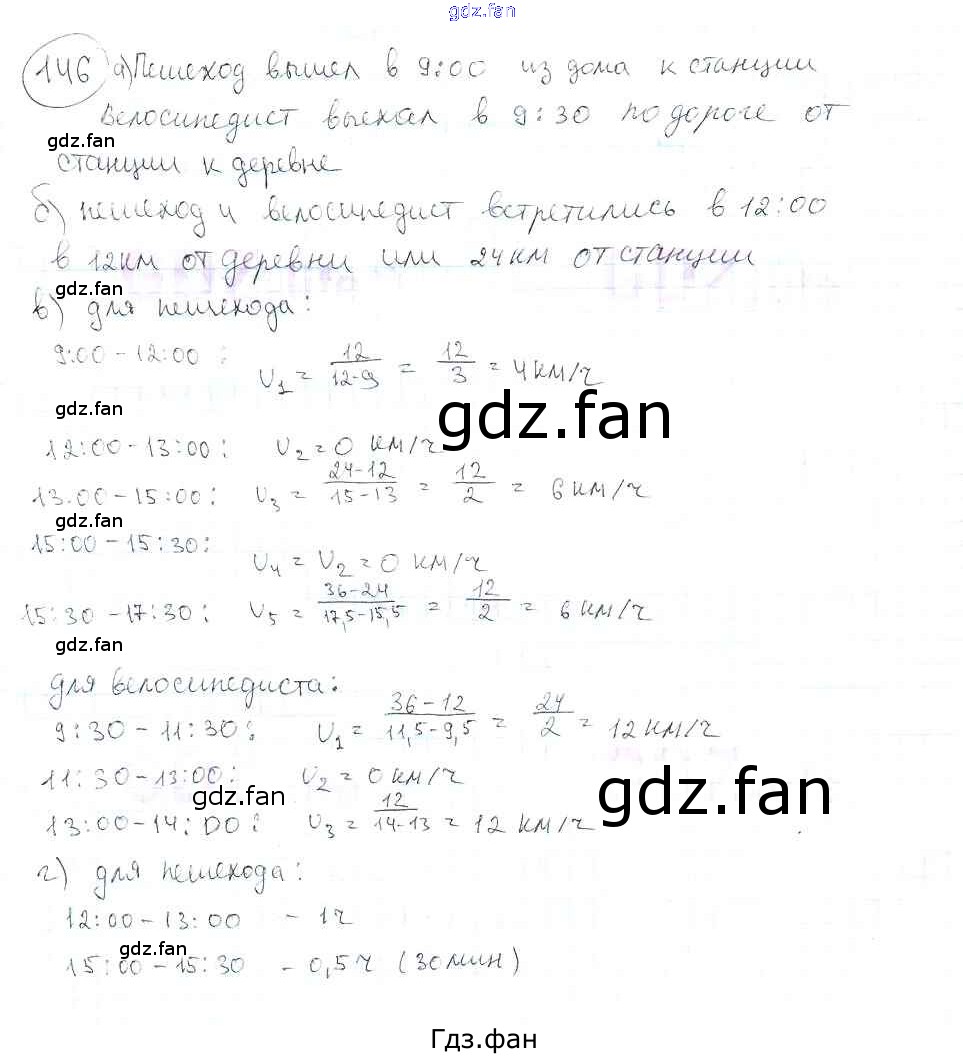 gdz.fan
146 а) Пешеход вышел в 9:00 из дома к станции
gdz.fan
Велосипедист выехал в 9:30 по дороге от
станции к деревне
б) пешеход и велосипедист встретились в 12:00
в 12км от деревни или 24км от станции
gdz.fan
в) для пешехода:
9:00-12:00: υ₁ = 12/12-9 = 12/3 = 4км/ч
gdz.fan
gdz.fan
12:00-13:00: υ₂=0 км/ч
13.00-15:00: υ₃ = 24-12/15-13 = 12/2 = 6км/ч
gdz.fan
15:00-15:30: υ₄ = υ₂ = 0 км/ч
15:30-17:30: υ₅ = 36-24/17,5-15,5 = 12/2 = 6км/ч
gdz.fan
для велосипедиста:
9:30-11:30: υ₁ = 36-12/11,5-9,5 = 24/2 = 12км/ч
11:30-13:00: υ₂=0км/ч
gdz.fan
gdz.fan
13:00-14:00: υ₃ = 12/14-13 = 12 км/ч
г) для пешехода:
12:00-13:00 - 1ч
gdz.fan
15:00-15:30 - 0,5ч (30мин)
Гдз.фан